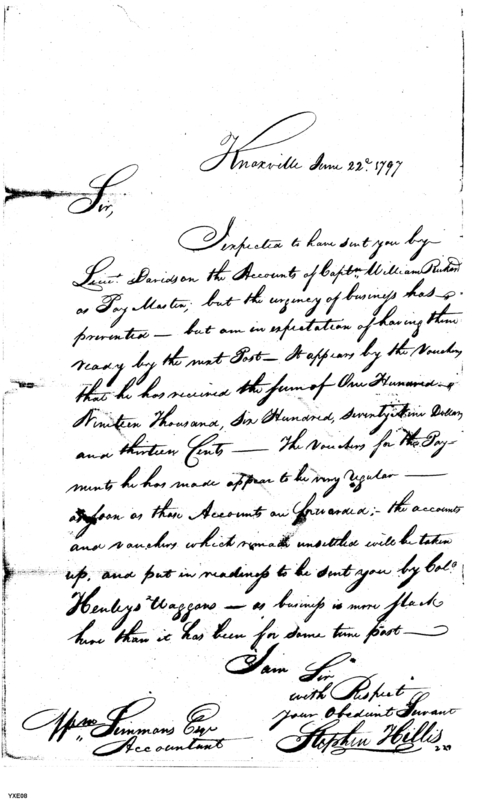 Knoxville June 22d. 1797
Sir,
I expected to have sent you by
Lieut. Davidson the Accounts of Captn. William Rickard
as Pay Master; but the urgency of business has
prevented — but am in expectation of having them
ready by the next Post — It appears by the Vouchers
that he has received the sum of One Hundred
Nineteen Thousand, Six Hundred, Seventy Dollars
and thirteen Cents — The Vouchers for the Pay-
ments he has made appear to be very regular —
as soon as those Accounts are forwarded; the accounts
and vouchers which remain unsettled will be taken
up, and put in readiness to be sent you by Colo.
Henleys Waggons — as business is more slack
here than it has been for some time past —
I am Sir
with Respect
your Obedient Servant
Stephen Hillis
Wm Simmons Esqr
Accountant
YXE08